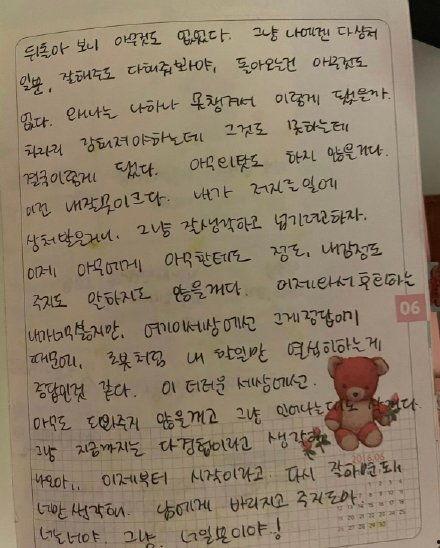 뒤돌아 보니 아무것도 없었다. 그냥 나에겐 다 상처
일뿐, 잘해주도 다해줘봐야, 돌아오는건 아무것도
없다. 왜 나는 나 하나 못챙겨서 이렇게 됐을까.
차라리 강해져야하는데 그것도 못하는데
결국 이렇게 됐다. 아무 탓도 하지 않을거다.
이건 내잘못이 크다. 내가 저지른일에
상처받은거니. 그냥 잘생각하고 넘기려고하자.
이제 아무에게 아무한테도 정도, 내감정도
주지도 말하지도 않을게다. 이제와서 후회하는
내가너무싫지만, 여기이세상에선 그게정답이기
때문에, 로봇처럼 내 할일만 열심히하는게
정답인것 같다. 이 더러운 세상에선.
아무도 도와주지 않을꺼고 그냥
그냥 지금까지는 다경험이라고 생각
이제부터 시작이라고. 다시 돼
너만생각해. 남에게 바라지고 주지도마.
너는너야. 그냥 너일뿐이야!
06
2016.06